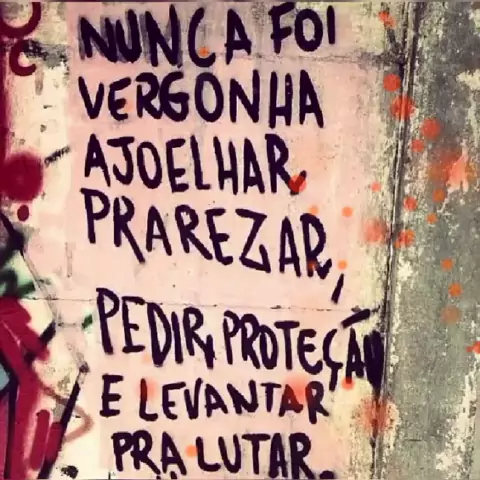 NUNCA FOI
VERGONHA
AJOELHAR,
PRA REZAR,
PEDIR, PROTEÇÃO
E LEVANTAR
PRA LUTAR.